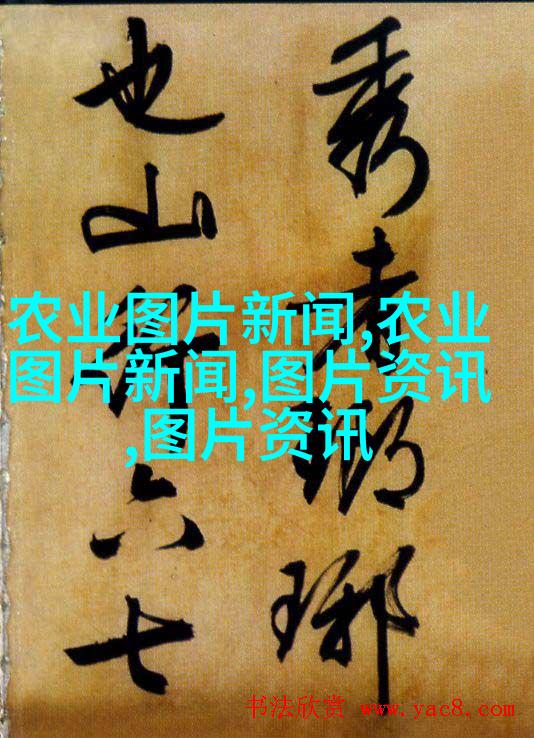 秀者瑯琊
也山行六七
农业图片新闻,农业
图片新闻,图片资讯
,图片资讯
书法欣赏 www.yac8.com